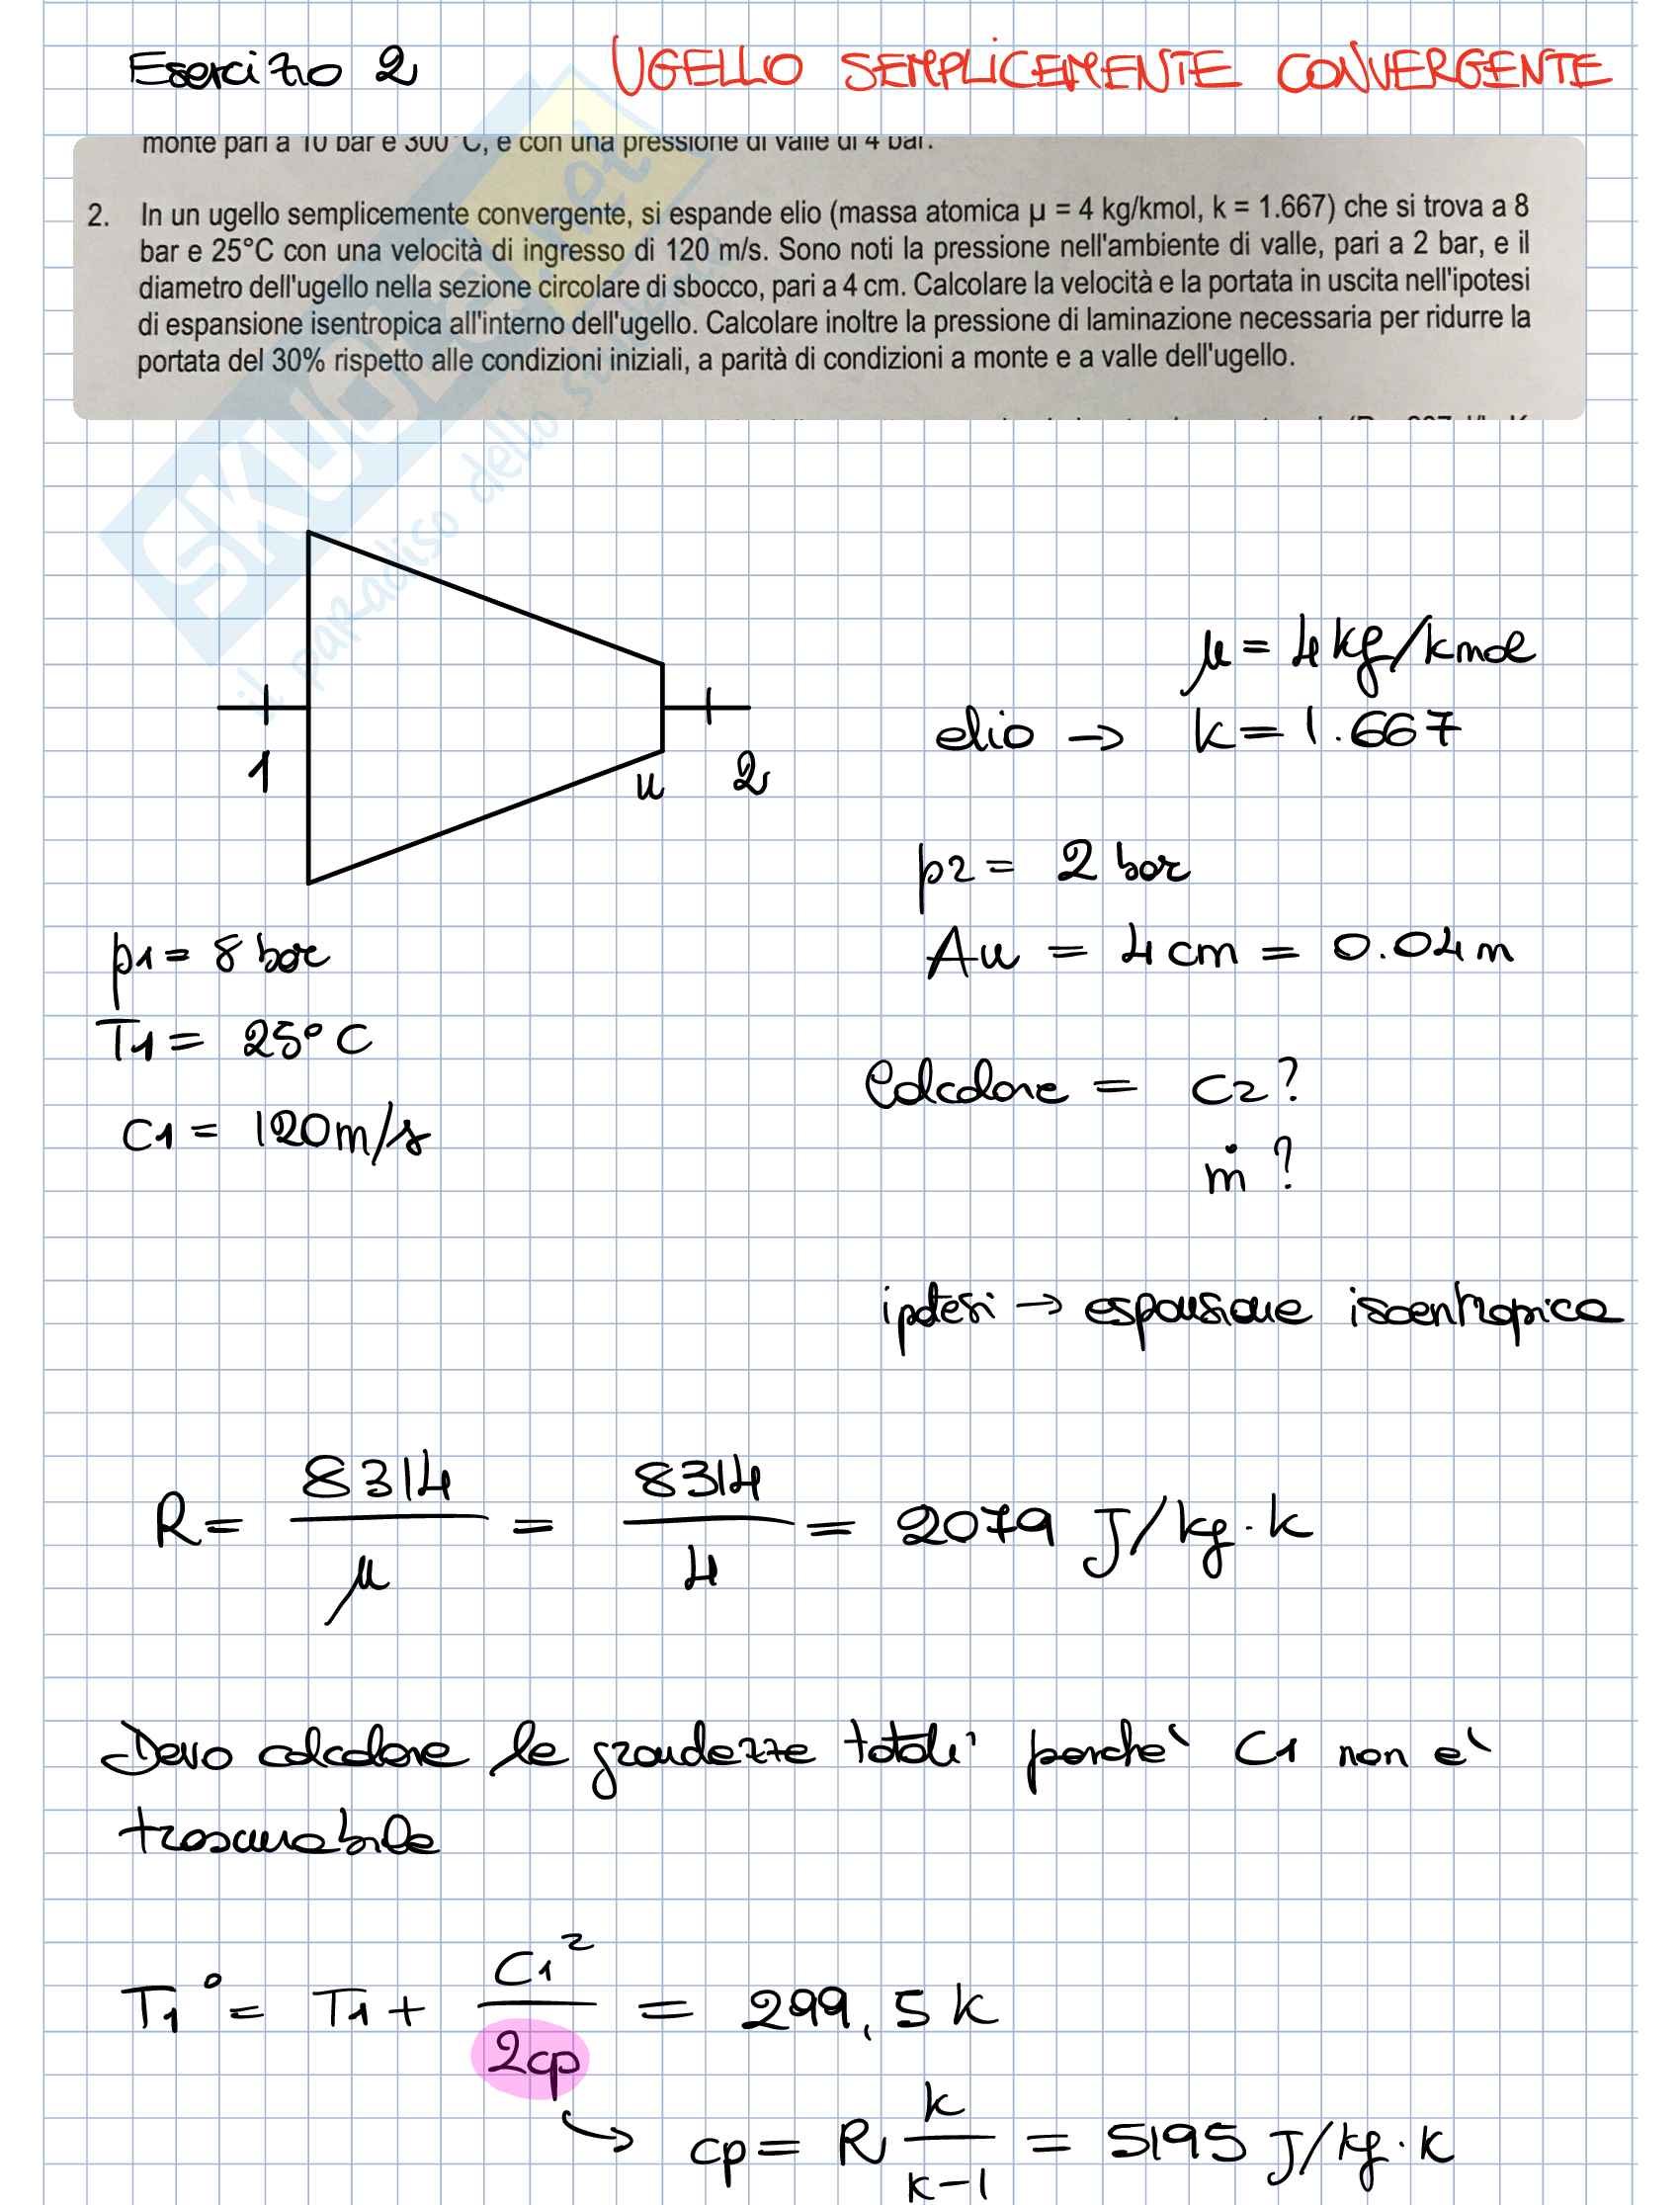 Esercizio 2 UGELLO SEMPLICEMENTE CONVERGENTE
monte pari a 10 bar e 300°C, e con una pressione di valle di 4 bar.
2. In un ugello semplicemente convergente, si espande elio (massa atomica µ = 4 kg/kmol, k = 1.667) che si trova a 8
bar e 25°C con una velocità di ingresso di 120 m/s. Sono noti la pressione nell'ambiente di valle, pari a 2 bar, e il
diametro dell'ugello nella sezione circolare di sbocco, pari a 4 cm. Calcolare la velocità e la portata in uscita nell'ipotesi
di espansione isentropica all'interno dell'ugello. Calcolare inoltre la pressione di laminazione necessaria per ridurre la
portata del 30% rispetto alle condizioni iniziali, a parità di condizioni a monte e a valle dell'ugello.
SKUOLA.net
il paradiso dello
1 u 2
µ = 4 kg/kmol
elio → k = 1.667
p2 = 2 bar
Au = 4 cm = 0.04 m
p1 = 8 bar
T1 = 25°C
c1 = 120 m/s
Calcolare = c2?
ṁ ?
ipotesi → espansione isoentropica
R = 8314/µ = 8314/4 = 2079 J/kg·k
Devo calcolare le grandezze totali perché c1 non è
trascurabile
T1° = T1 + c1²/2cp = 299,5 K
cp = R k/k-1 = 5195 J/kg·K